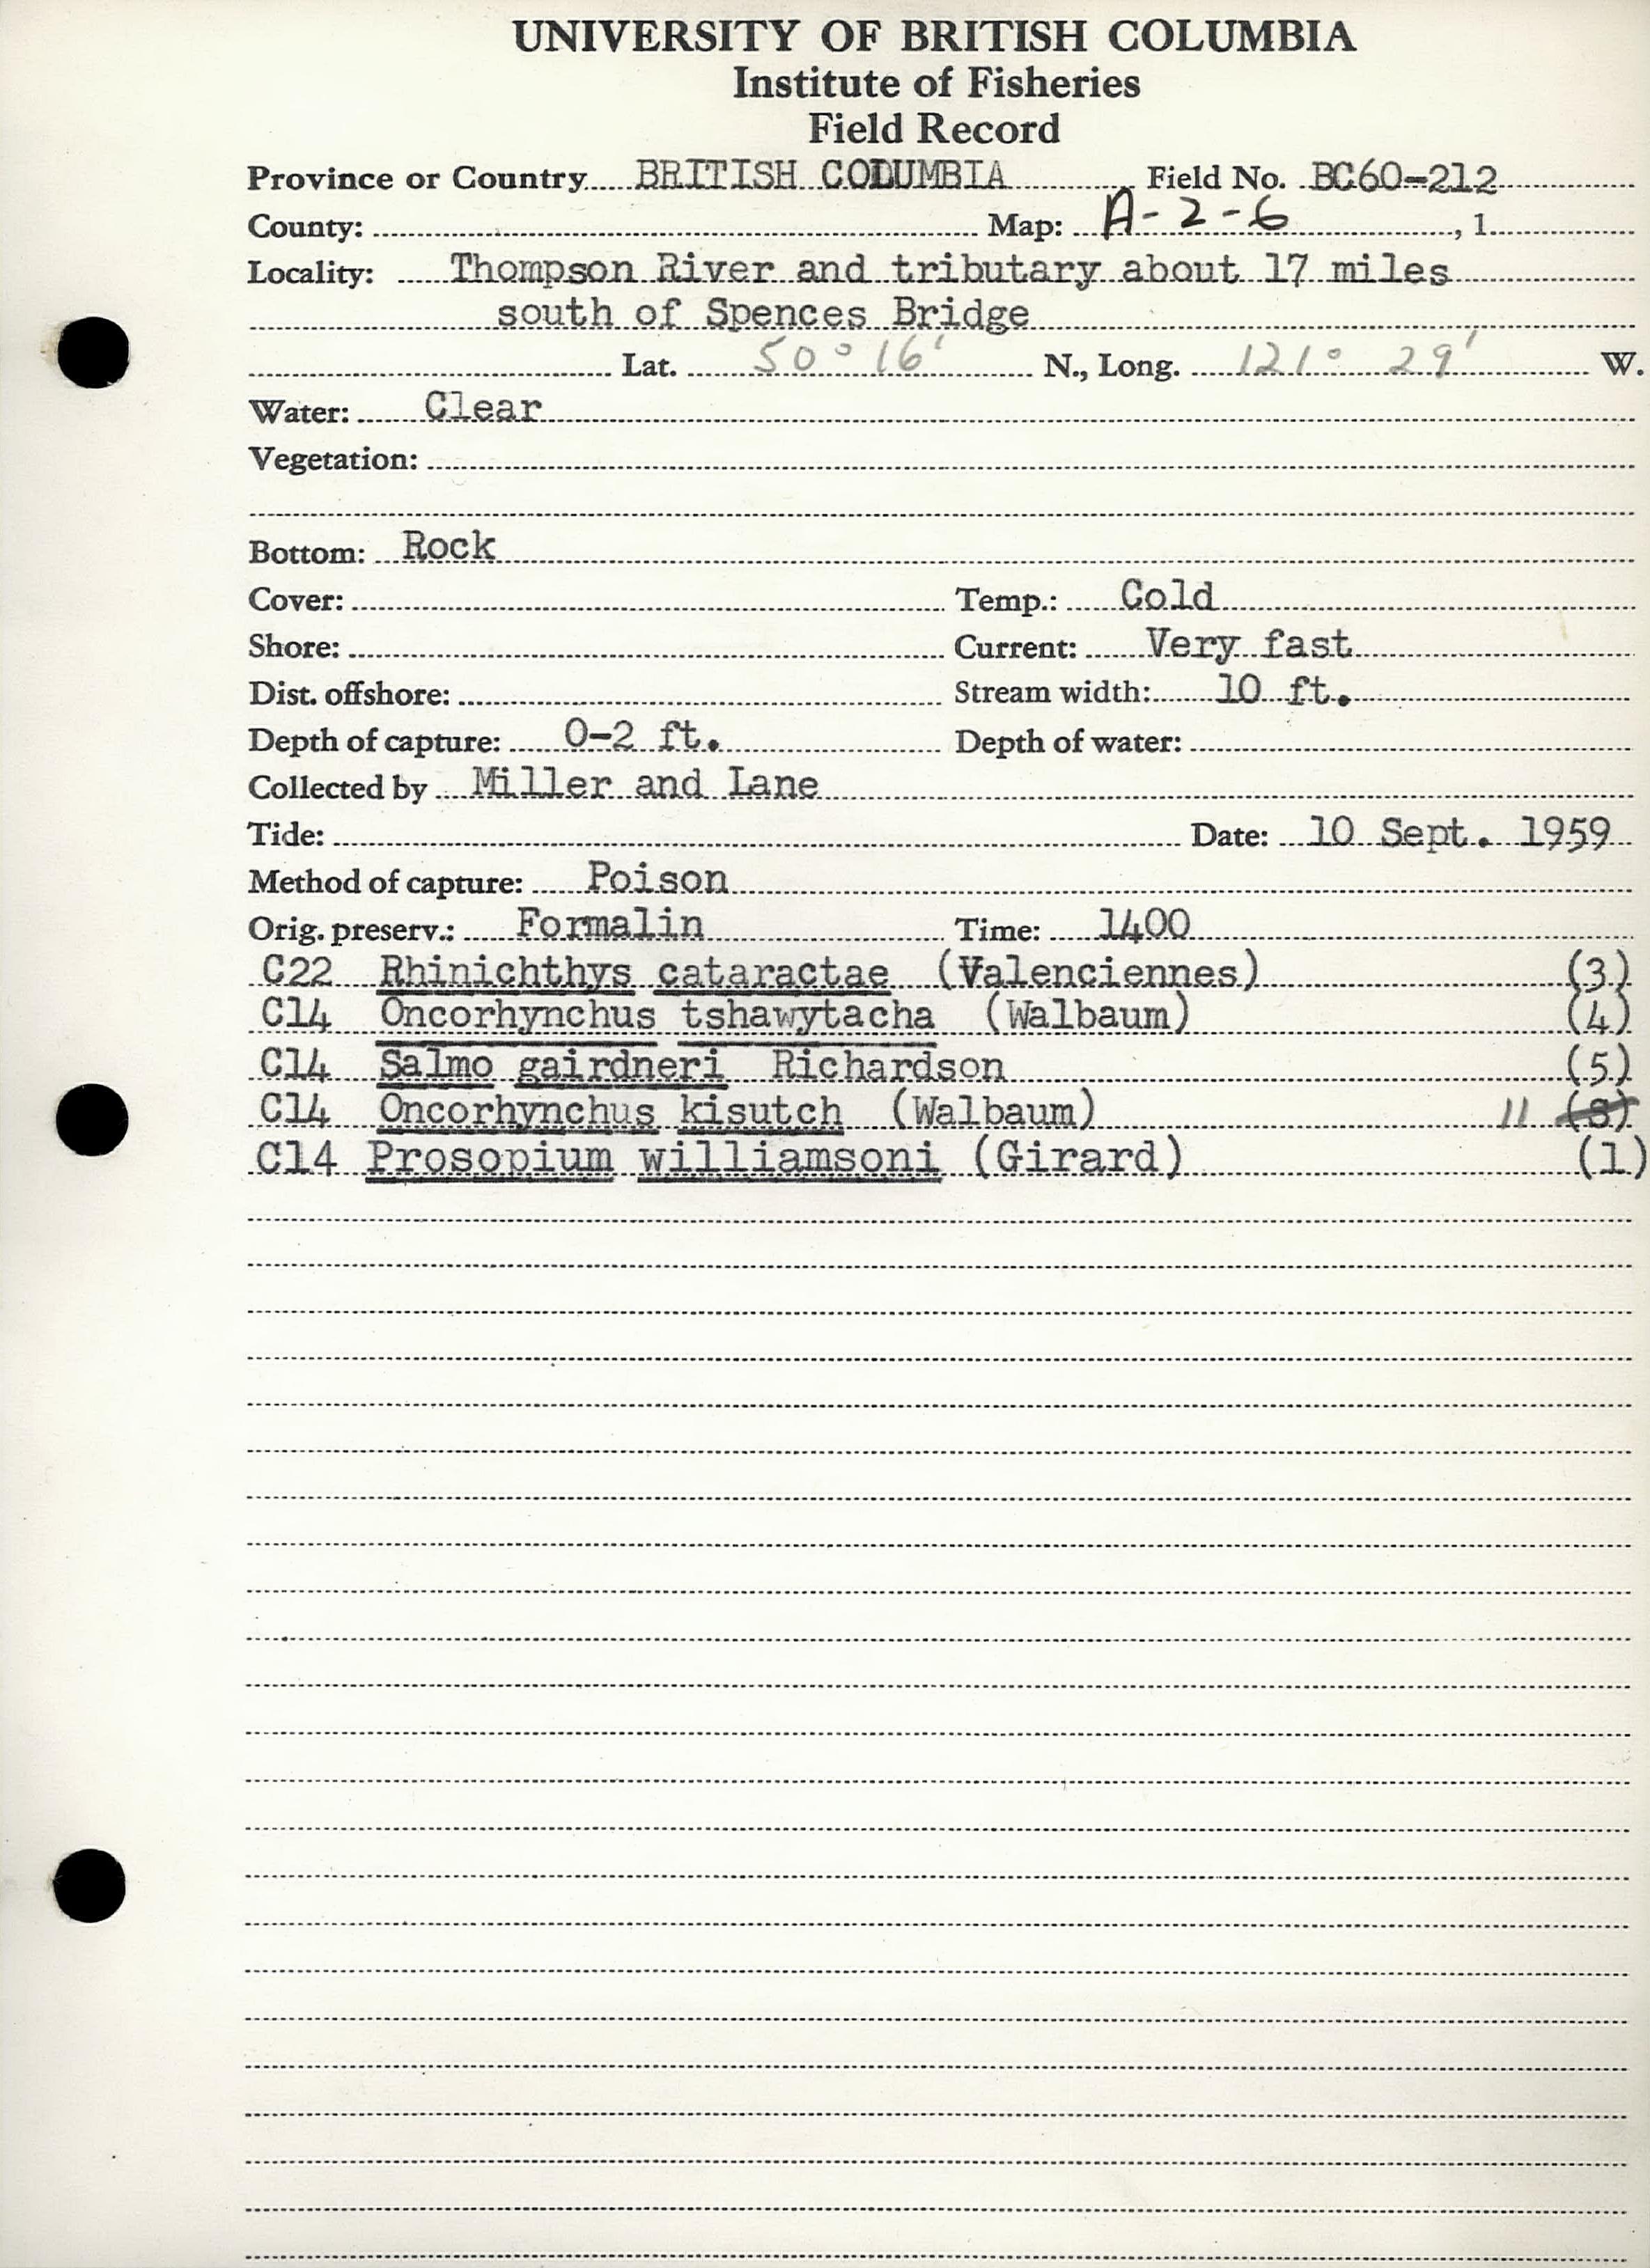 UNIVERSITY OF BRITISH COLUMBIA
Institute of Fisheries
Field Record
Province or Country BRITISH COLUMBIA Field No. BC60-212
County: Map: A-2-6, 1
Locality: Thompson River and tributary about 17 miles
south of Spences Bridge
Lat. 50° 16' N., Long. 121° 29' W.
Water: Clear
Vegetation:
Bottom: Rock
Cover: Temp.: Cold
Shore: Current: Very fast
Dist. offshore: Stream width: 10 ft.
Depth of capture: 0-2 ft. Depth of water:
Collected by Miller and Lane
Tide: Date: 10 Sept. 1959
Method of capture: Poison
Orig. preserv.: Formalin Time: 1400
C22 Rhinichthys cataractae (Valenciennes) (3)
C14 Oncorhynchus tshawytacha (Walbaum) (4)
C14 Salmo gairdneri Richardson (5)
C14 Oncorhynchus kisutch (Walbaum) 11
C14 Prosopium williamsoni (Girard) (1)